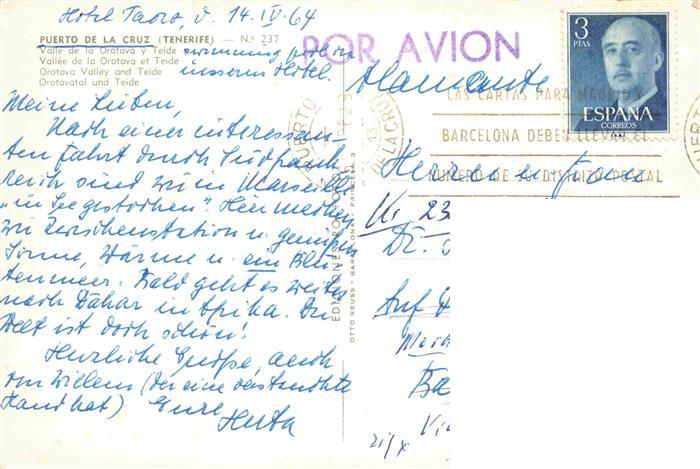 Hotel Taoro, d. 14.IV.64
PUERTO DE LA CRUZ (TENERIFE) — N.º 237
Valle de la Orotava y Teide
Vallée de la Orotava et Teide
Orotava Valley and Teide
Orotavatal und Teide
swimming pool in
unserm Hotel.
Meine Lieben,
Nach einer interessan-
ten Fahrt durch Südfrank-
reich sind wir in Marseille
"in See gestochen". Hier machen
wir Zwischenstation u. genießen
Sonne, Wärme u. ein Blü-
tenmeer. Bald geht es weiter
nach Dakar in Afrika. Die
Welt ist doch schön!
Herzliche Grüße, auch
von Willem (der eine verstauchte
Hand hat) Eure
Herta
EDICIONES
OTTO REUSS - BARCELONA - PRINCESA, 3
POR AVION
3
PTAS
ESPAÑA
CORREOS
PUERTO
DE LA CRUZ
LAS CARTAS PARA MADRID Y
BARCELONA DEBEN LLEVAR EL
NUMERO DE SU DISTRITO POSTAL
Alemania
Herrn u. Frau
Dr.
Auf